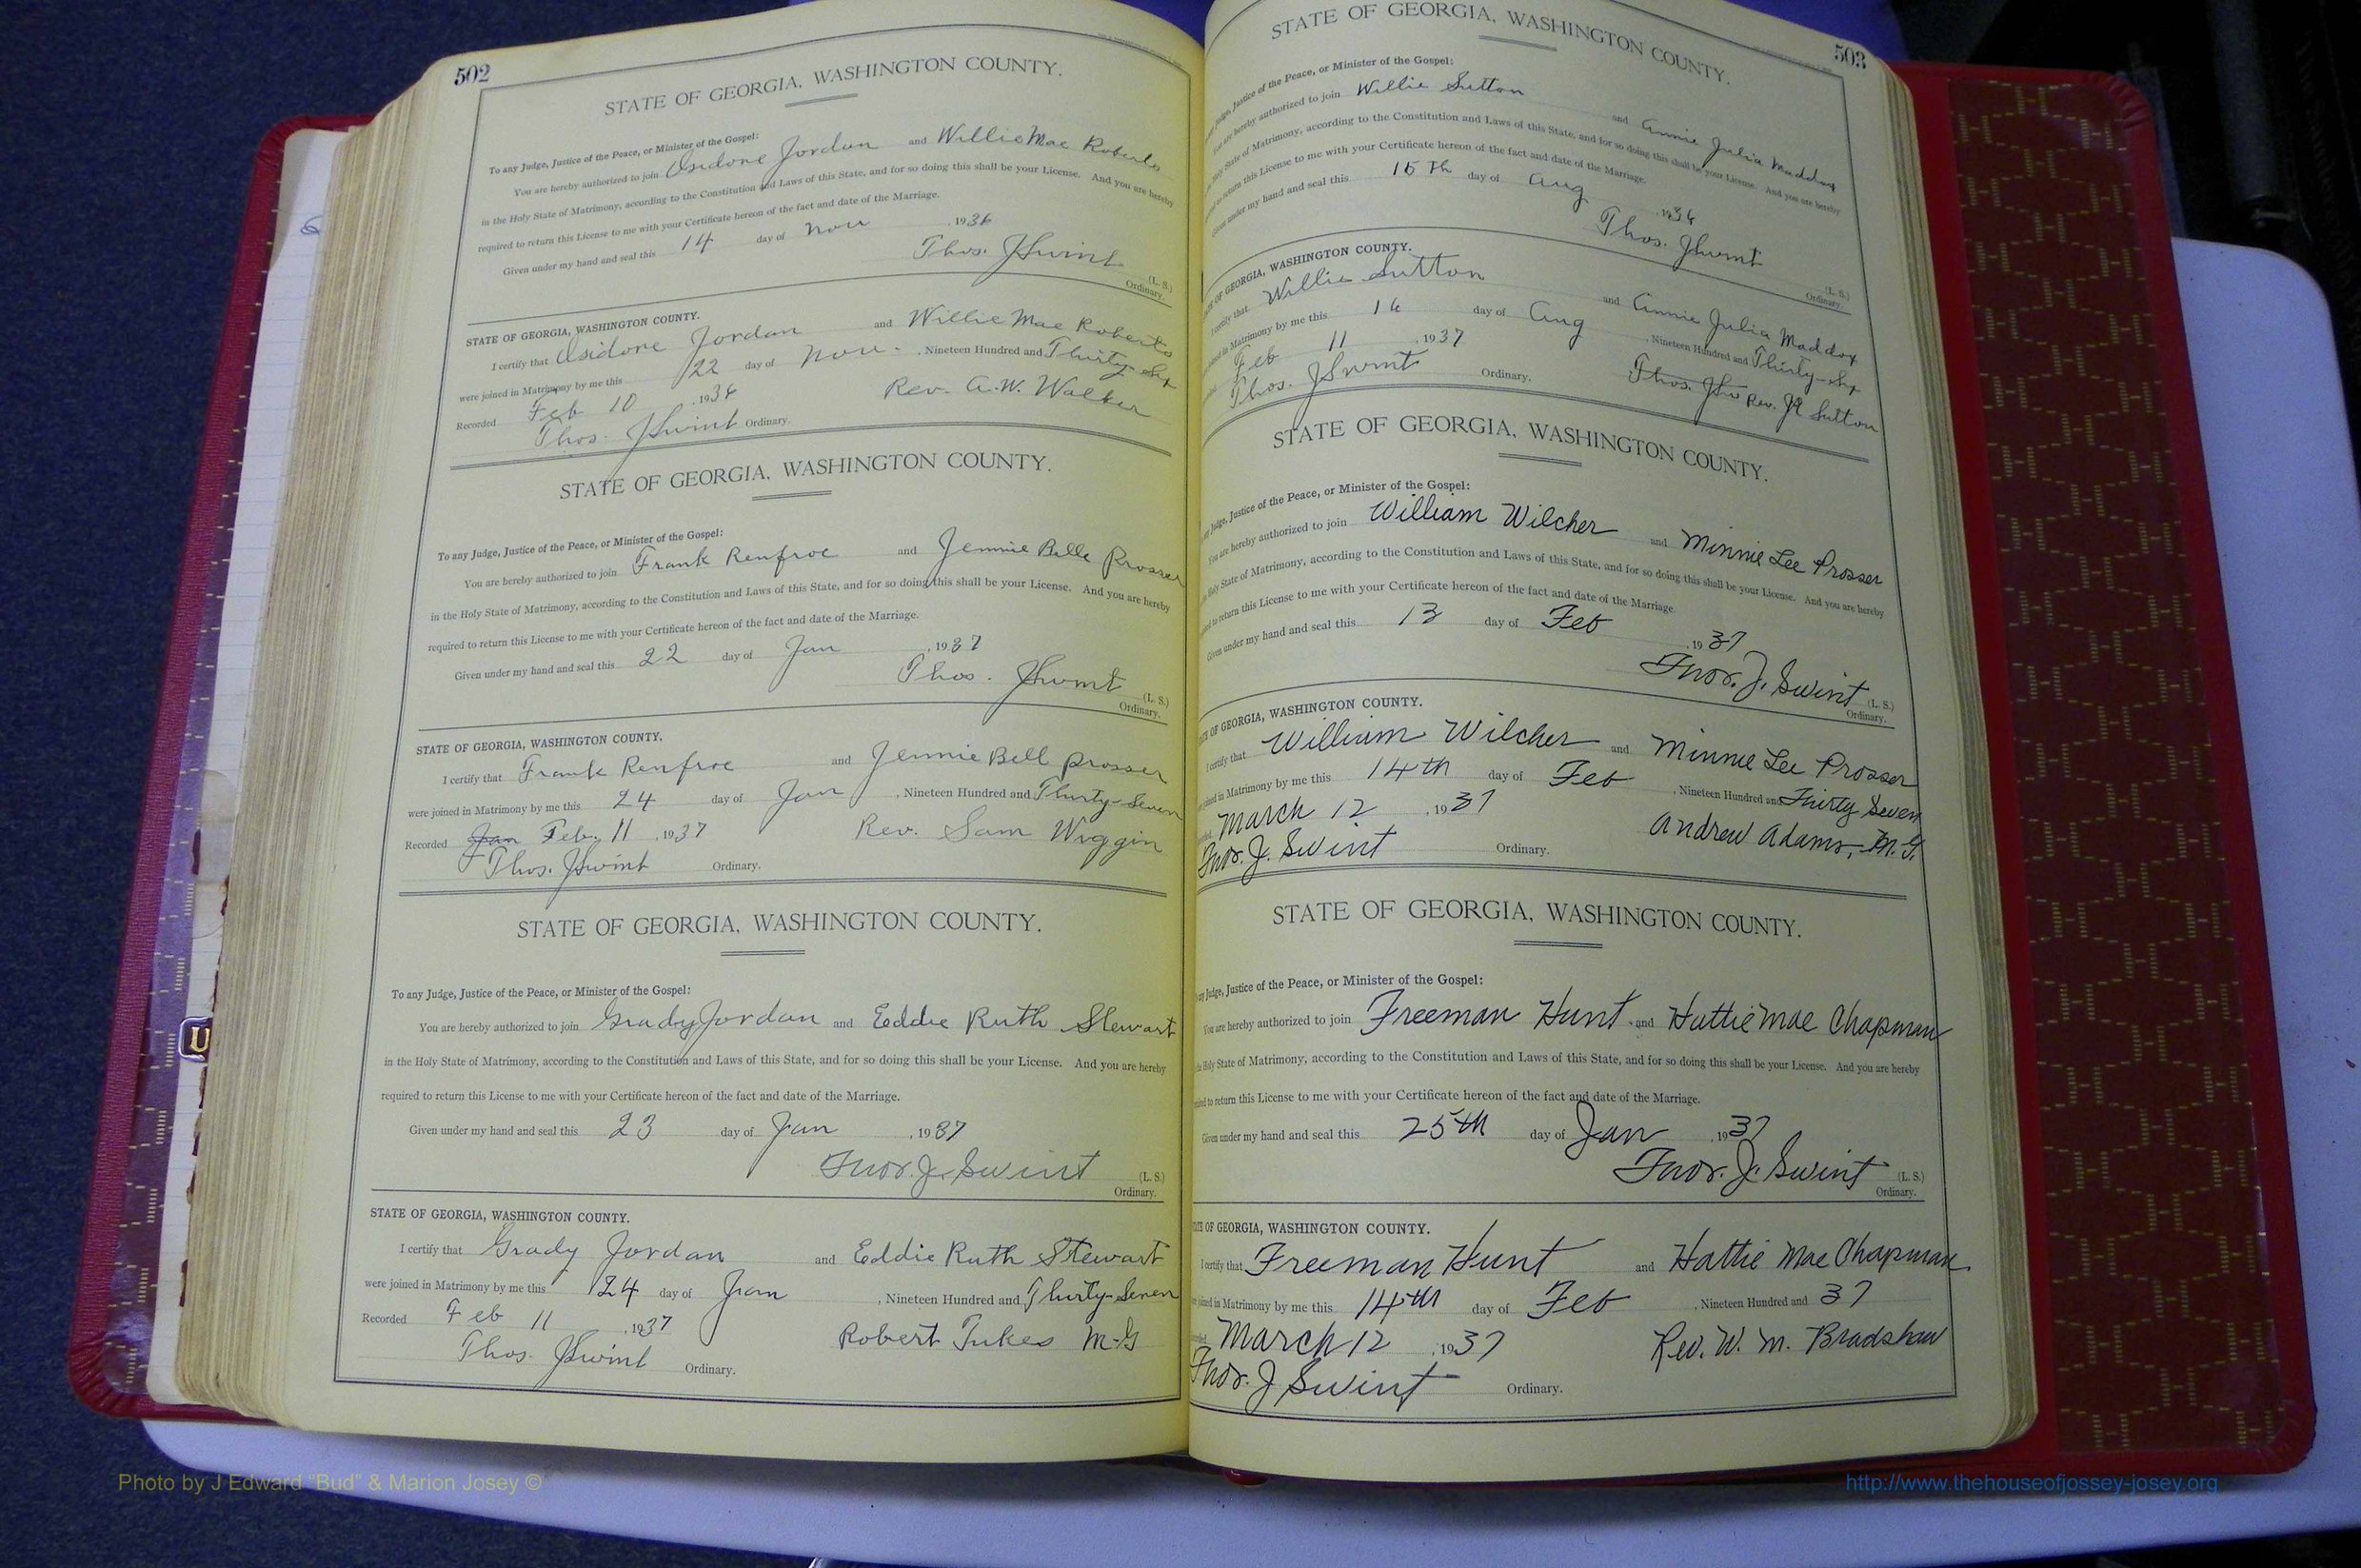 502
STATE OF GEORGIA, WASHINGTON COUNTY.
To any Judge, Justice of the Peace, or Minister of the Gospel:
You are hereby authorized to join Osidore Jordan and Willie Mae Roberts
in the Holy State of Matrimony, according to the Constitution and Laws of this State, and for so doing this shall be your License. And you are hereby
required to return this License to me with your Certificate hereon of the fact and date of the Marriage.
Given under my hand and seal this 14 day of Nov 1936
Thos. J Swint (L. S.)
Ordinary.
STATE OF GEORGIA, WASHINGTON COUNTY.
I certify that Osidore Jordan and Willie Mae Roberts
were joined in Matrimony by me this 22 day of Nov. , Nineteen Hundred and Thirty-Six
Recorded Feb 10 , 1936 Rev. A. W. Walker
Thos. J Swint Ordinary.
STATE OF GEORGIA, WASHINGTON COUNTY.
To any Judge, Justice of the Peace, or Minister of the Gospel:
You are hereby authorized to join Frank Renfroe and Jennie Belle Prosser
in the Holy State of Matrimony, according to the Constitution and Laws of this State, and for so doing this shall be your License. And you are hereby
required to return this License to me with your Certificate hereon of the fact and date of the Marriage.
Given under my hand and seal this 22 day of Jan , 1937
Thos. J Swint (L. S.)
Ordinary.
STATE OF GEORGIA, WASHINGTON COUNTY.
I certify that Frank Renfroe and Jennie Bell Prosser
were joined in Matrimony by me this 24 day of Jan , Nineteen Hundred and Thirty-Seven
Recorded Jan Feb. 11 , 1937 Rev. Sam Wiggin
Thos. J Swint Ordinary.
STATE OF GEORGIA, WASHINGTON COUNTY.
To any Judge, Justice of the Peace, or Minister of the Gospel:
You are hereby authorized to join Grady Jordan and Eddie Ruth Stewart
in the Holy State of Matrimony, according to the Constitution and Laws of this State, and for so doing this shall be your License. And you are hereby
required to return this License to me with your Certificate hereon of the fact and date of the Marriage.
Given under my hand and seal this 23 day of Jan , 1937
Thos. J. Swint (L. S.)
Ordinary.
STATE OF GEORGIA, WASHINGTON COUNTY.
I certify that Grady Jordan and Eddie Ruth Stewart
were joined in Matrimony by me this 24 day of Jan , Nineteen Hundred and Thirty-Seven
Recorded Feb 11 , 1937 Robert Tukes M-G
Thos. J Swint Ordinary.
503
STATE OF GEORGIA, WASHINGTON COUNTY.
Judge, Justice of the Peace, or Minister of the Gospel:
You are hereby authorized to join Willie Sutton and Annie Julia Maddox
Holy State of Matrimony, according to the Constitution and Laws of this State, and for so doing this shall be your License. And you are hereby
return this License to me with your Certificate hereon of the fact and date of the Marriage.
Given under my hand and seal this 15th day of Aug , 1936
Thos. J Swint (L. S.)
Ordinary.
OF GEORGIA, WASHINGTON COUNTY.
I certify that Willie Sutton and Annie Julia Maddox
joined in Matrimony by me this 16 day of Aug , Nineteen Hundred and Thirty-Six
Feb 11 , 1937 Thos. J Rev. JR Sutton
Thos. J Swint Ordinary.
STATE OF GEORGIA, WASHINGTON COUNTY.
any Judge, Justice of the Peace, or Minister of the Gospel:
You are hereby authorized to join William Wilcher and Minnie Lee Prosser
Holy State of Matrimony, according to the Constitution and Laws of this State, and for so doing this shall be your License. And you are hereby
to return this License to me with your Certificate hereon of the fact and date of the Marriage.
Given under my hand and seal this 13 day of Feb , 1937
Thos. J. Swint (L. S.)
Ordinary.
OF GEORGIA, WASHINGTON COUNTY.
I certify that William Wilcher and Minnie Lee Prosser
joined in Matrimony by me this 14th day of Feb , Nineteen Hundred and Thirty Seven
March 12 , 1937 Andrew Adams, M. G.
Thos. J. Swint Ordinary.
STATE OF GEORGIA, WASHINGTON COUNTY.
any Judge, Justice of the Peace, or Minister of the Gospel:
You are hereby authorized to join Freeman Hunt and Hattie Mae Chapman
Holy State of Matrimony, according to the Constitution and Laws of this State, and for so doing this shall be your License. And you are hereby
to return this License to me with your Certificate hereon of the fact and date of the Marriage.
Given under my hand and seal this 25th day of Jan , 1937
Thos. J. Swint (L. S.)
Ordinary.
OF GEORGIA, WASHINGTON COUNTY.
I certify that Freeman Hunt and Hattie Mae Chapman
joined in Matrimony by me this 14th day of Feb , Nineteen Hundred and 37
March 12 , 1937 Rev. W. M. Bradshaw
Thos. J Swint Ordinary.
Photo by J Edward "Bud" & Marion Josey ©
http://www.thehouseofjossey-josey.org